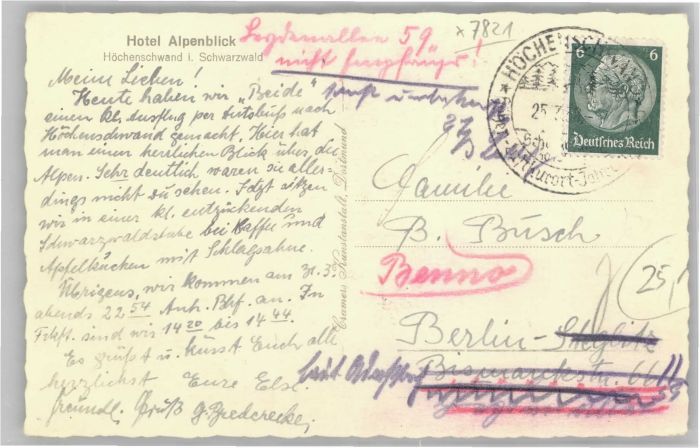 Hotel Alpenblick
Höchenschwand i. Schwarzwald
x7821
Leydenallee 59
nicht
Meine Lieben!
Heute haben wir „Beide"
einen kl. Ausflug per Autobus nach
Höchenschwand gemacht. Hier hat
man einen herrlichen Blick über die
Alpen. Sehr deutlich waren sie aller
dings nicht zu sehen. Jetzt sitzen
wir in einer kl. entzückenden
Schwarzwaldstube bei Kaffee und
Apfelkuchen mit Schlagsahne.
Übrigens, wir kommen am 31.3.
abends 22 54 Anh. Bhf. an. In
Frkft. sind wir 14 20 bis 14 44.
Es grüßt u. küsst Euch alle
herzlichst Eure Else.
Freundl. Gruß G.
Cramers Kunstanstalt, Dortmund
HÖCHENSCHWAND
25.
6 6
Deutsches Reich
Familie
B. Busch
Benno
Berlin-Steglitz
Bismarckstr. 66 II
25,